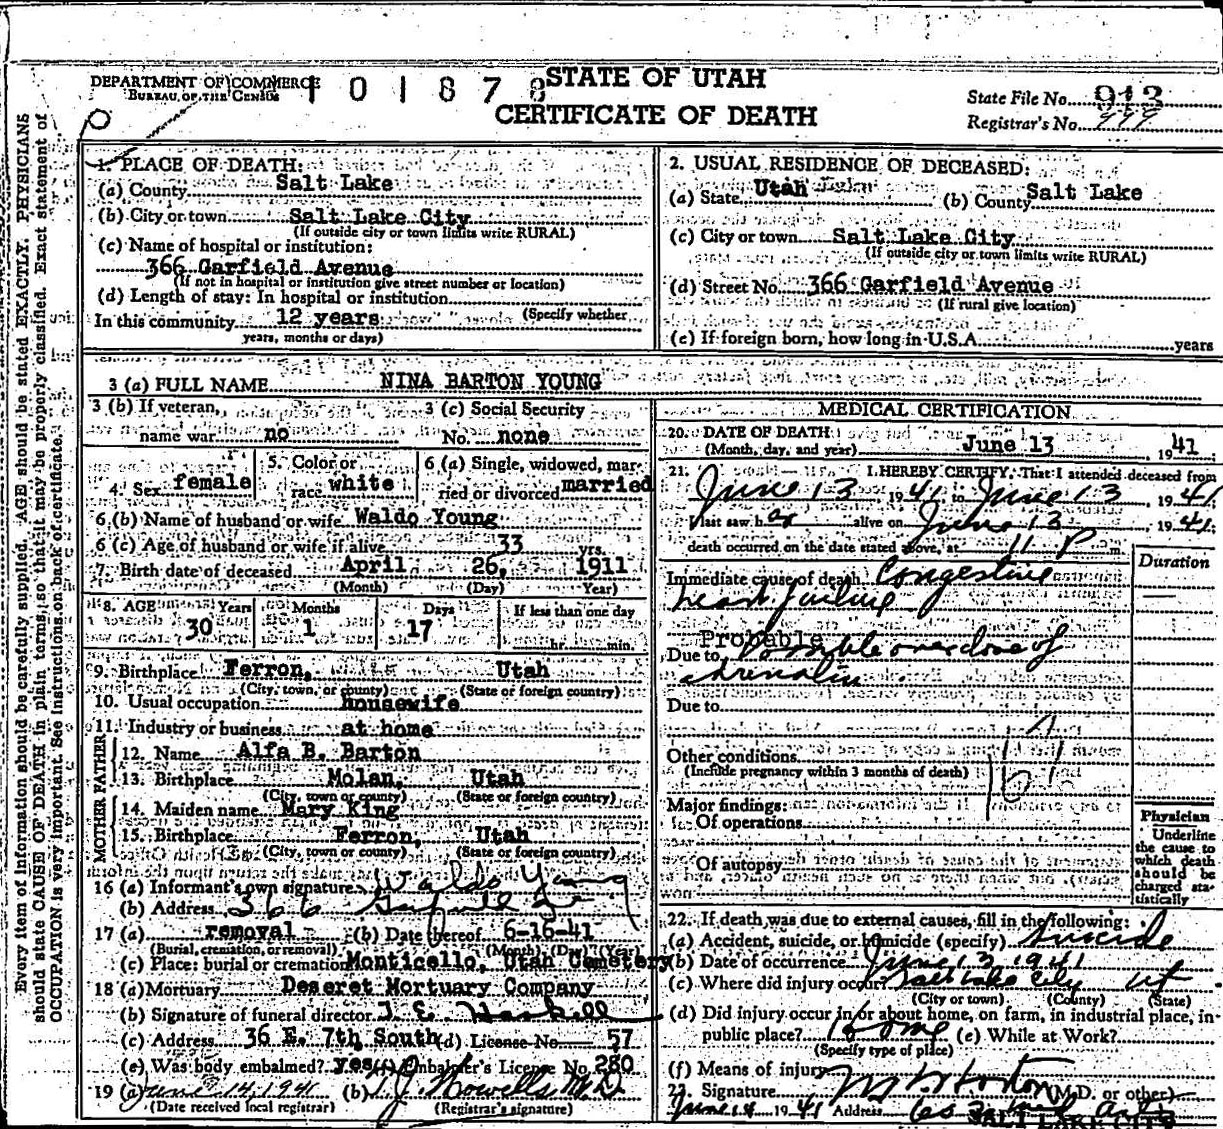 DEPARTMENT OF COMMERCE
BUREAU OF THE CENSUS
101878
STATE OF UTAH
CERTIFICATE OF DEATH
State File No. 913
Registrar's No. 999
Every item of information should be carefully supplied. AGE should be stated EXACTLY. PHYSICIANS
should state CAUSE OF DEATH in plain terms, so that it may be properly classified. Exact statement of
OCCUPATION is very important. See instructions on back of certificate.
1. PLACE OF DEATH:
(a) County Salt Lake
(b) City or town Salt Lake City
(If outside city or town limits write RURAL)
(c) Name of hospital or institution:
366 Garfield Avenue
(If not in hospital or institution give street number or location)
(d) Length of stay: In hospital or institution
In this community 12 years (Specify whether
years, months or days)
2. USUAL RESIDENCE OF DECEASED:
(a) State Utah (b) County Salt Lake
(c) City or town Salt Lake City
(If outside city or town limits write RURAL)
(d) Street No. 366 Garfield Avenue
(If rural give location)
(e) If foreign born, how long in U.S.A. years
3 (a) FULL NAME NINA BARTON YOUNG
3 (b) If veteran, name war no
3 (c) Social Security No. none
4. Sex female
5. Color or race white
6 (a) Single, widowed, married or divorced married
6 (b) Name of husband or wife Waldo Young
6 (c) Age of husband or wife if alive 33 yrs.
7. Birth date of deceased April 26, 1911
(Month) (Day) (Year)
8. AGE Years Months Days If less than one day
30 1 17 hr. min.
9. Birthplace Ferron, Utah
(City, town, or county) (State or foreign country)
10. Usual occupation housewife
11. Industry or business at home
FATHER
12. Name Alfa B. Barton
13. Birthplace Molan, Utah
(City, town or county) (State or foreign country)
MOTHER
14. Maiden name Mary King
15. Birthplace Ferron, Utah
(City, town or county) (State or foreign country)
16 (a) Informant's own signature Waldo Young
(b) Address 366
17 (a) removal (b) Date thereof 6-16-41
(Burial, cremation, or removal) (Month) (Day) (Year)
(c) Place: burial or cremation Monticello, Utah Cemetery
18 (a) Mortuary Deseret Mortuary Company
(b) Signature of funeral director J. E.
(c) Address 36 E. 7th South (d) License No. 57
(e) Was body embalmed? yes (f) Embalmer's License No. 280
19 (a) June 14, 1941 (b) T. J. Howells M.D.
(Date received local registrar) (Registrar's signature)
MEDICAL CERTIFICATION
20. DATE OF DEATH June 13 1941
(Month, day, and year)
21. I HEREBY CERTIFY, That I attended deceased from
June 13 1941 to June 13 1941
I last saw her alive on June 13 1941
death occurred on the date stated above, at 11 P m.
Duration
Immediate cause of death Congestive
heart failure
Probable
Due to Possible overdose of
adrenalin
Due to
Other conditions
(Include pregnancy within 3 months of death)
Major findings:
Of operations
Of autopsy
Physician
Underline
the cause to
which death
should be
charged sta-
tistically
22. If death was due to external causes, fill in the following:
(a) Accident, suicide, or homicide (specify) Suicide
(b) Date of occurrence June 13 1941
(c) Where did injury occur? Salt Lake City Ut
(City or town) (County) (State)
(d) Did injury occur in or about home, on farm, in industrial place, in
public place? Home (e) While at Work?
(Specify type of place)
(f) Means of injury
23. Signature (M.D. or other)
June 14 1941 Address
SALT LAKE CITY